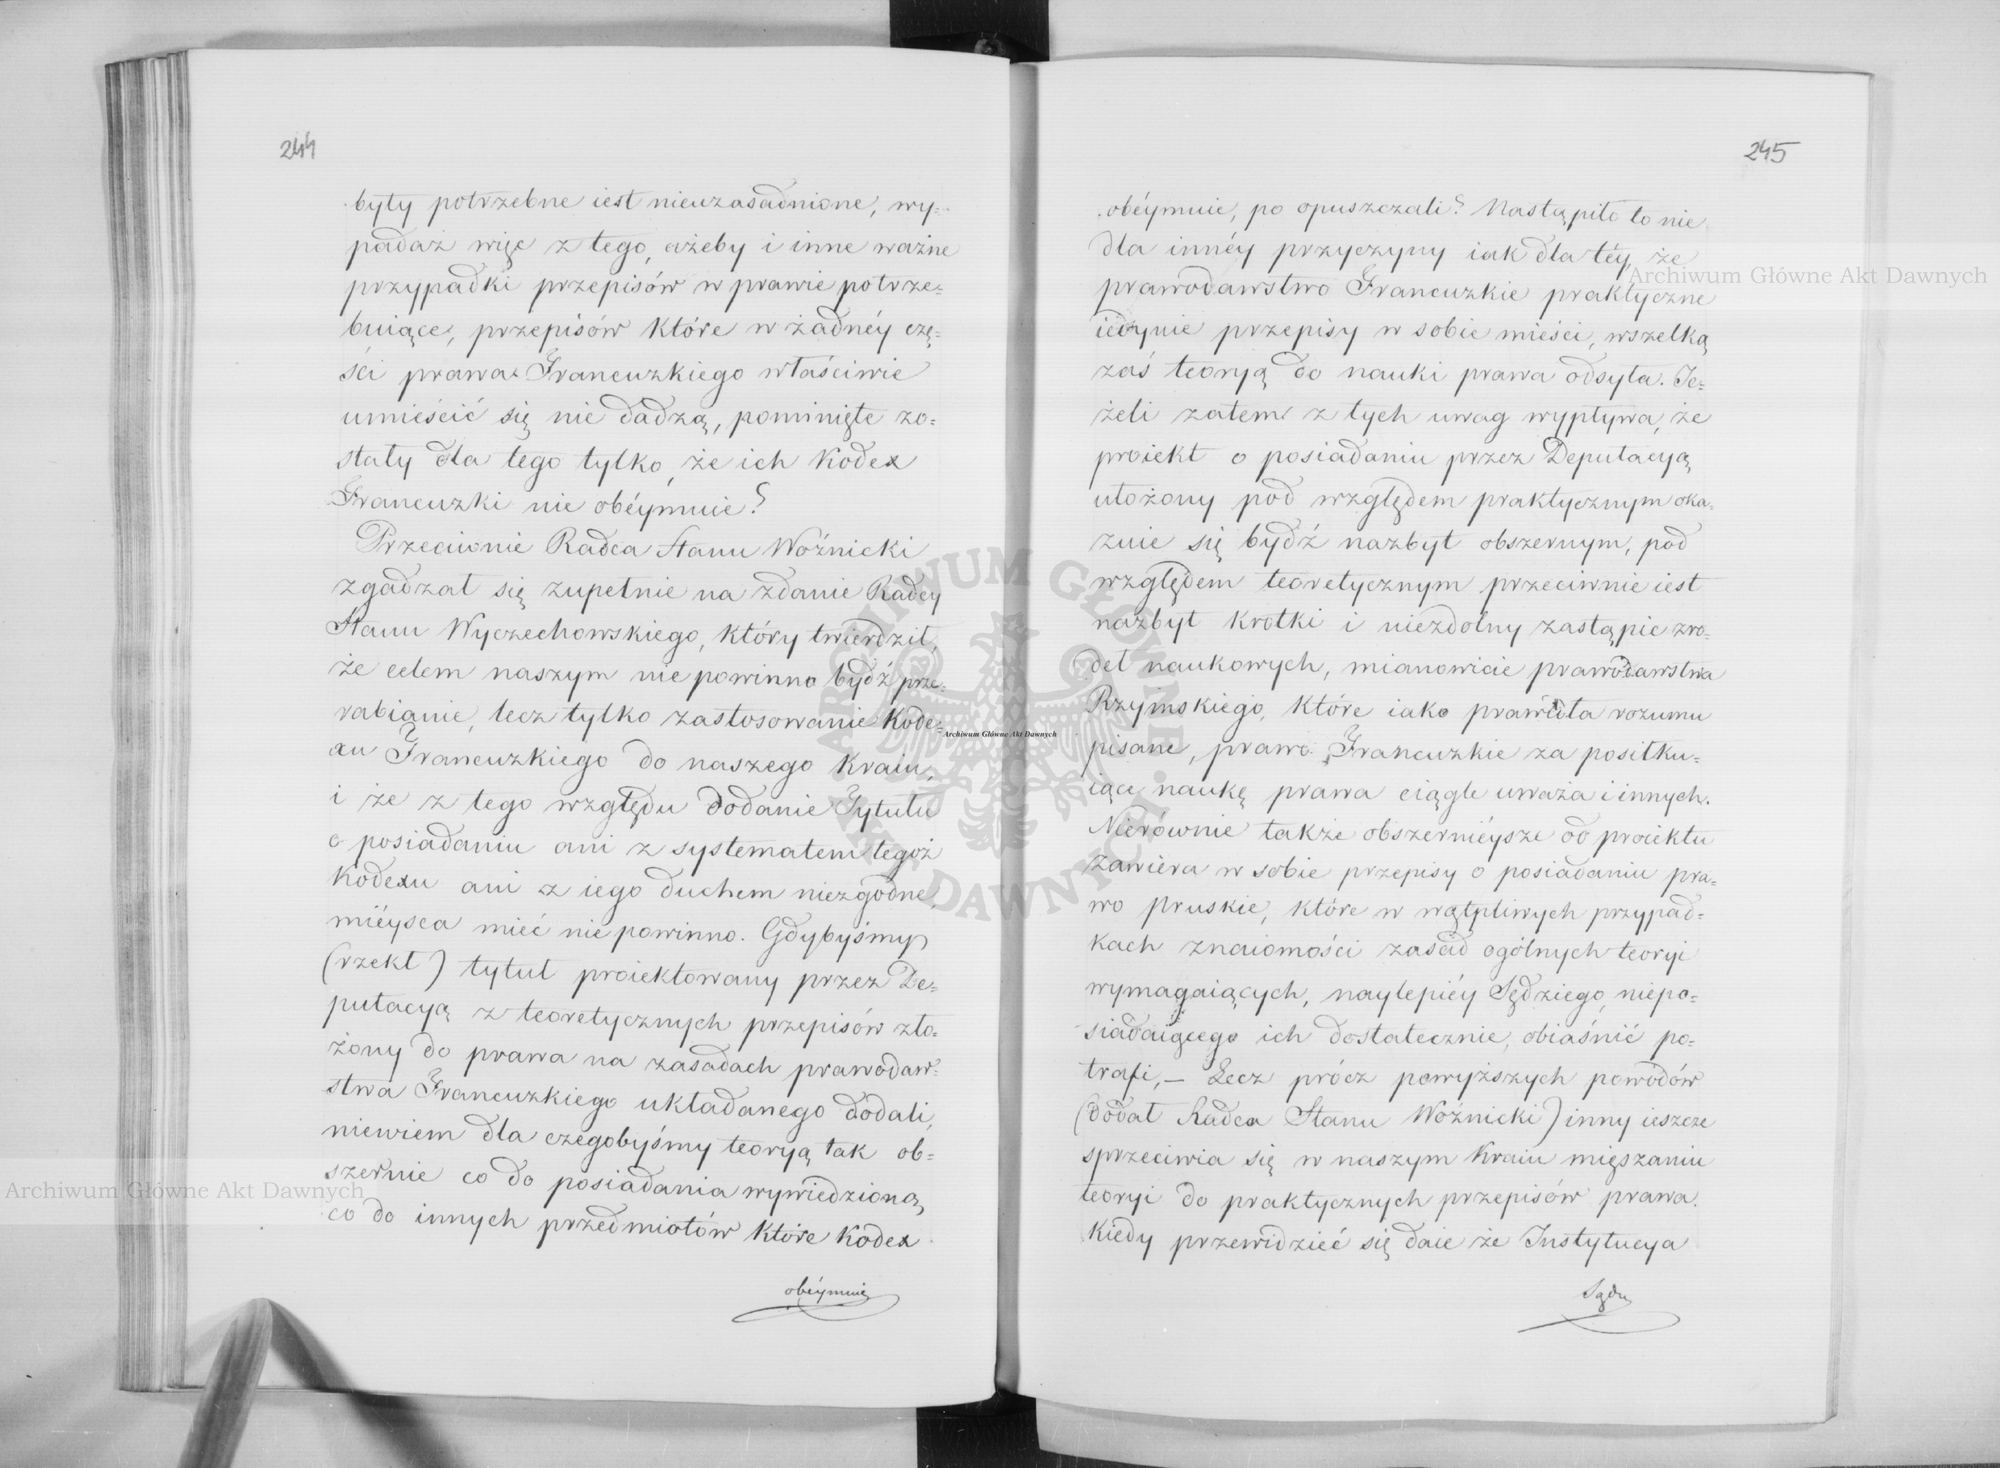 244
były potrzebne iest nieuzasadnione, wy=
padaż więc z tego, ażeby i inne ważne
przypadki przepisów w prawie potrze=
buiące, przepisów które w żadnéy czę=
ści prawa Francuzkiego właściwie
umieścić się nie dadzą, pominięte zo=
stały dla tego tylko, że ich Kodex
Francuzki nie obéymuie?
Przeciwnie Radca Stanu Woźnicki
zgadzał się zupełnie na zdanie Radcy
Stanu Wyczechowskiego, który twierdził,
że celem naszym nie powinno bydź prze=
rabianie, lecz tylko zastosowanie Kode=
xu Francuzkiego do naszego Kraiu,
i że z tego względu dodanie Tytułu
o posiadaniu ani z systematem tegoż
Kodexu ani z iego duchem niezgodne,
miéysca mieć nie powinno. Gdybyśmy
(rzekł) tytuł proiektowany przez De=
putacyą z teoretycznych przepisów zło=
żony do prawa na zasadach prawodaw=
stwa Francuzkiego układanego dodali,
niewiem dla czegobyśmy teoryą tak ob=
szernie co do posiadania wywiedzioną,
co do innych przedmiotów które Kodex
obéymuie
245
obéymuie, po opuszczali? Nastąpiło to nie
dla innéy przyczyny iak dla téy, że
prawodawstwo Francuzkie praktyczne
iedynie przepisy w sobie mieści, wszelką
zaś teoryą do nauki prawa odsyła. Je=
żeli zatem z tych uwag wypływa, że
proiekt o posiadaniu przez Deputacyą
ułożony pod względem praktycznym oka=
zuie się bydź nazbyt obszernym, pod
względem teoretycznym przeciwnie iest
nazbyt krotki i niezdolny zastąpić zro=
deł naukowych, mianowicie prawodawstwa
Rzymskiego, które iako prawidła rozumu
pisane, prawo Francuzkie za posiłku=
iącą naukę prawa ciągle uważa i innych.
Nierównie także obszerniéysze od proiektu
zawiera w sobie przepisy o posiadaniu pra=
wo pruskie, które w wątpliwych przypad=
kach znaiomości zasad ogólnych teoryi
wymagaiących, naylepiéy Sędziego, niepo=
siadaiącego ich dostatecznie, obiaśnić po=
trafi, — Lecz prócz powyższych powodów
(dodał Radca Stanu Woźnicki) inny ieszcze
sprzeciwia się w naszym Kraiu mięszaniu
teoryi do praktycznych przepisów prawa.
Kiedy przewidzieć się daie że Instytucya
Sądu
Archiwum Główne Akt Dawnych
Archiwum Główne Akt Dawnych
Archiwum Główne Akt Dawnych
ARCHIWUM GŁÓWNE AKT DAWNYCH